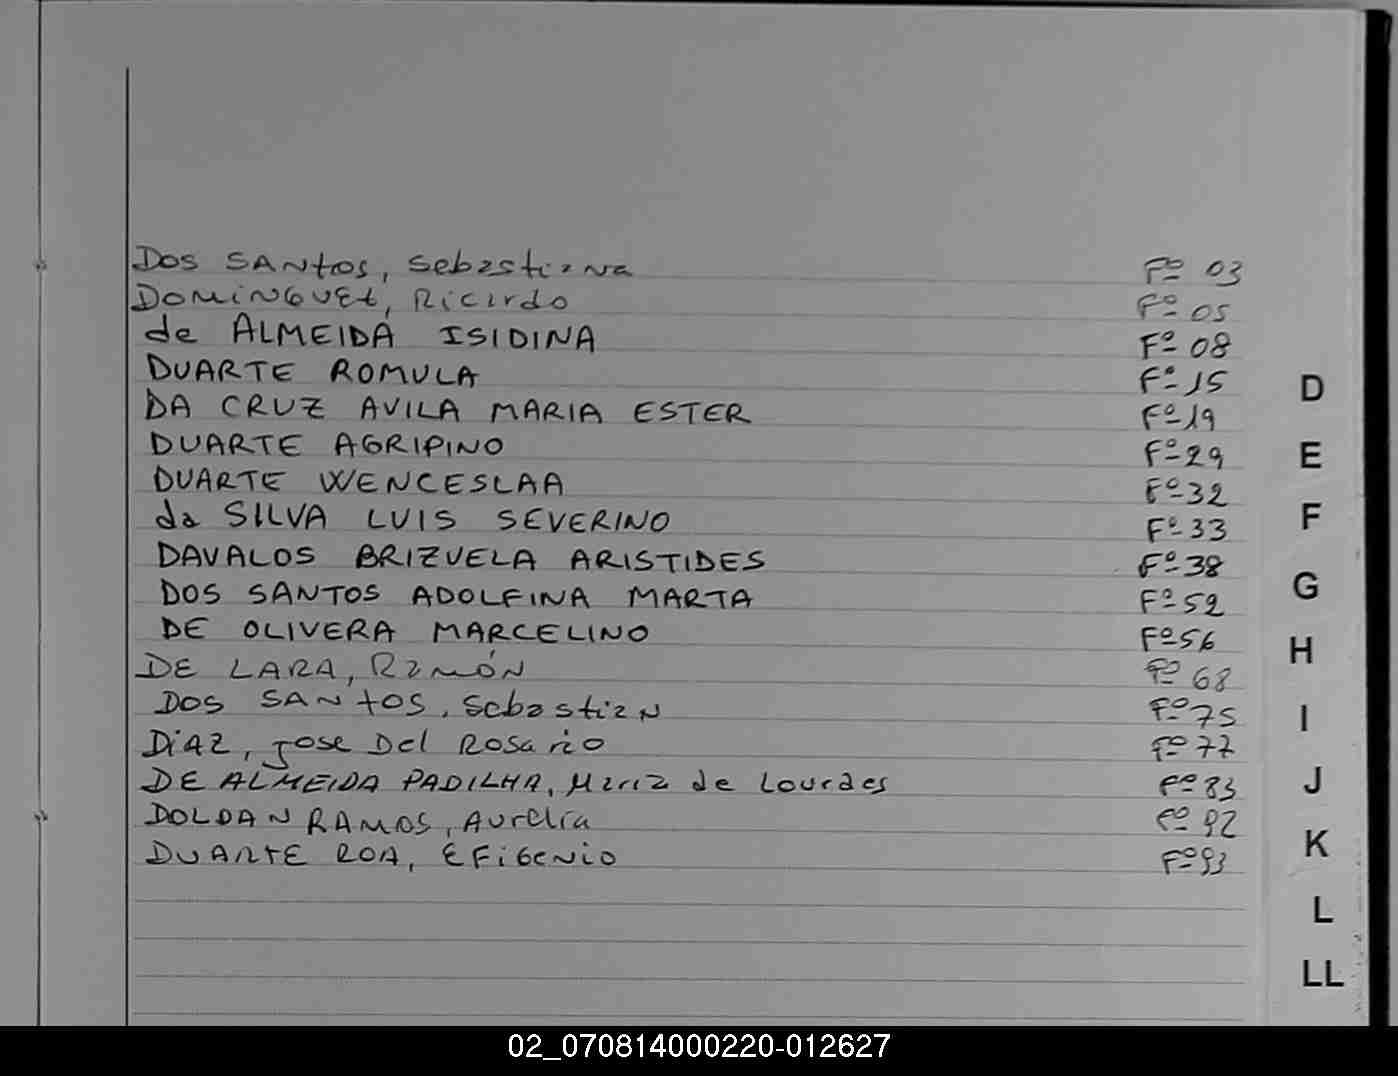 DOS SANtos, Sebastiana Fº 03
DOMINGUEZ, Ricardo Fº 05
de ALMEIDA ISIDINA Fº 08
DUARTE ROMULA Fº 15
DA CRUZ AVILA MARIA ESTER Fº 19
DUARTE AGRIPINO Fº 29
DUARTE WENCESLAA Fº 32
da SILVA LUIS SEVERINO Fº 33
DAVALOS BRIZUELA ARISTIDES Fº 38
DOS SANTOS ADOLFINA MARTA Fº 52
DE OLIVERA MARCELINO Fº 56
DE LARA, Ramón Fº 68
DOS SANtOS, Sebastian Fº 75
DiAZ, Jose Del Rosario Fº 77
DE ALMEIDA PADILHA, Maria de Lourdes Fº 83
DOLDAN RAMOS, Aurelia Fº 92
DUARTE ROA, EFiGENiO Fº 93
D
E
F
G
H
I
J
K
L
LL
02_070814000220-012627